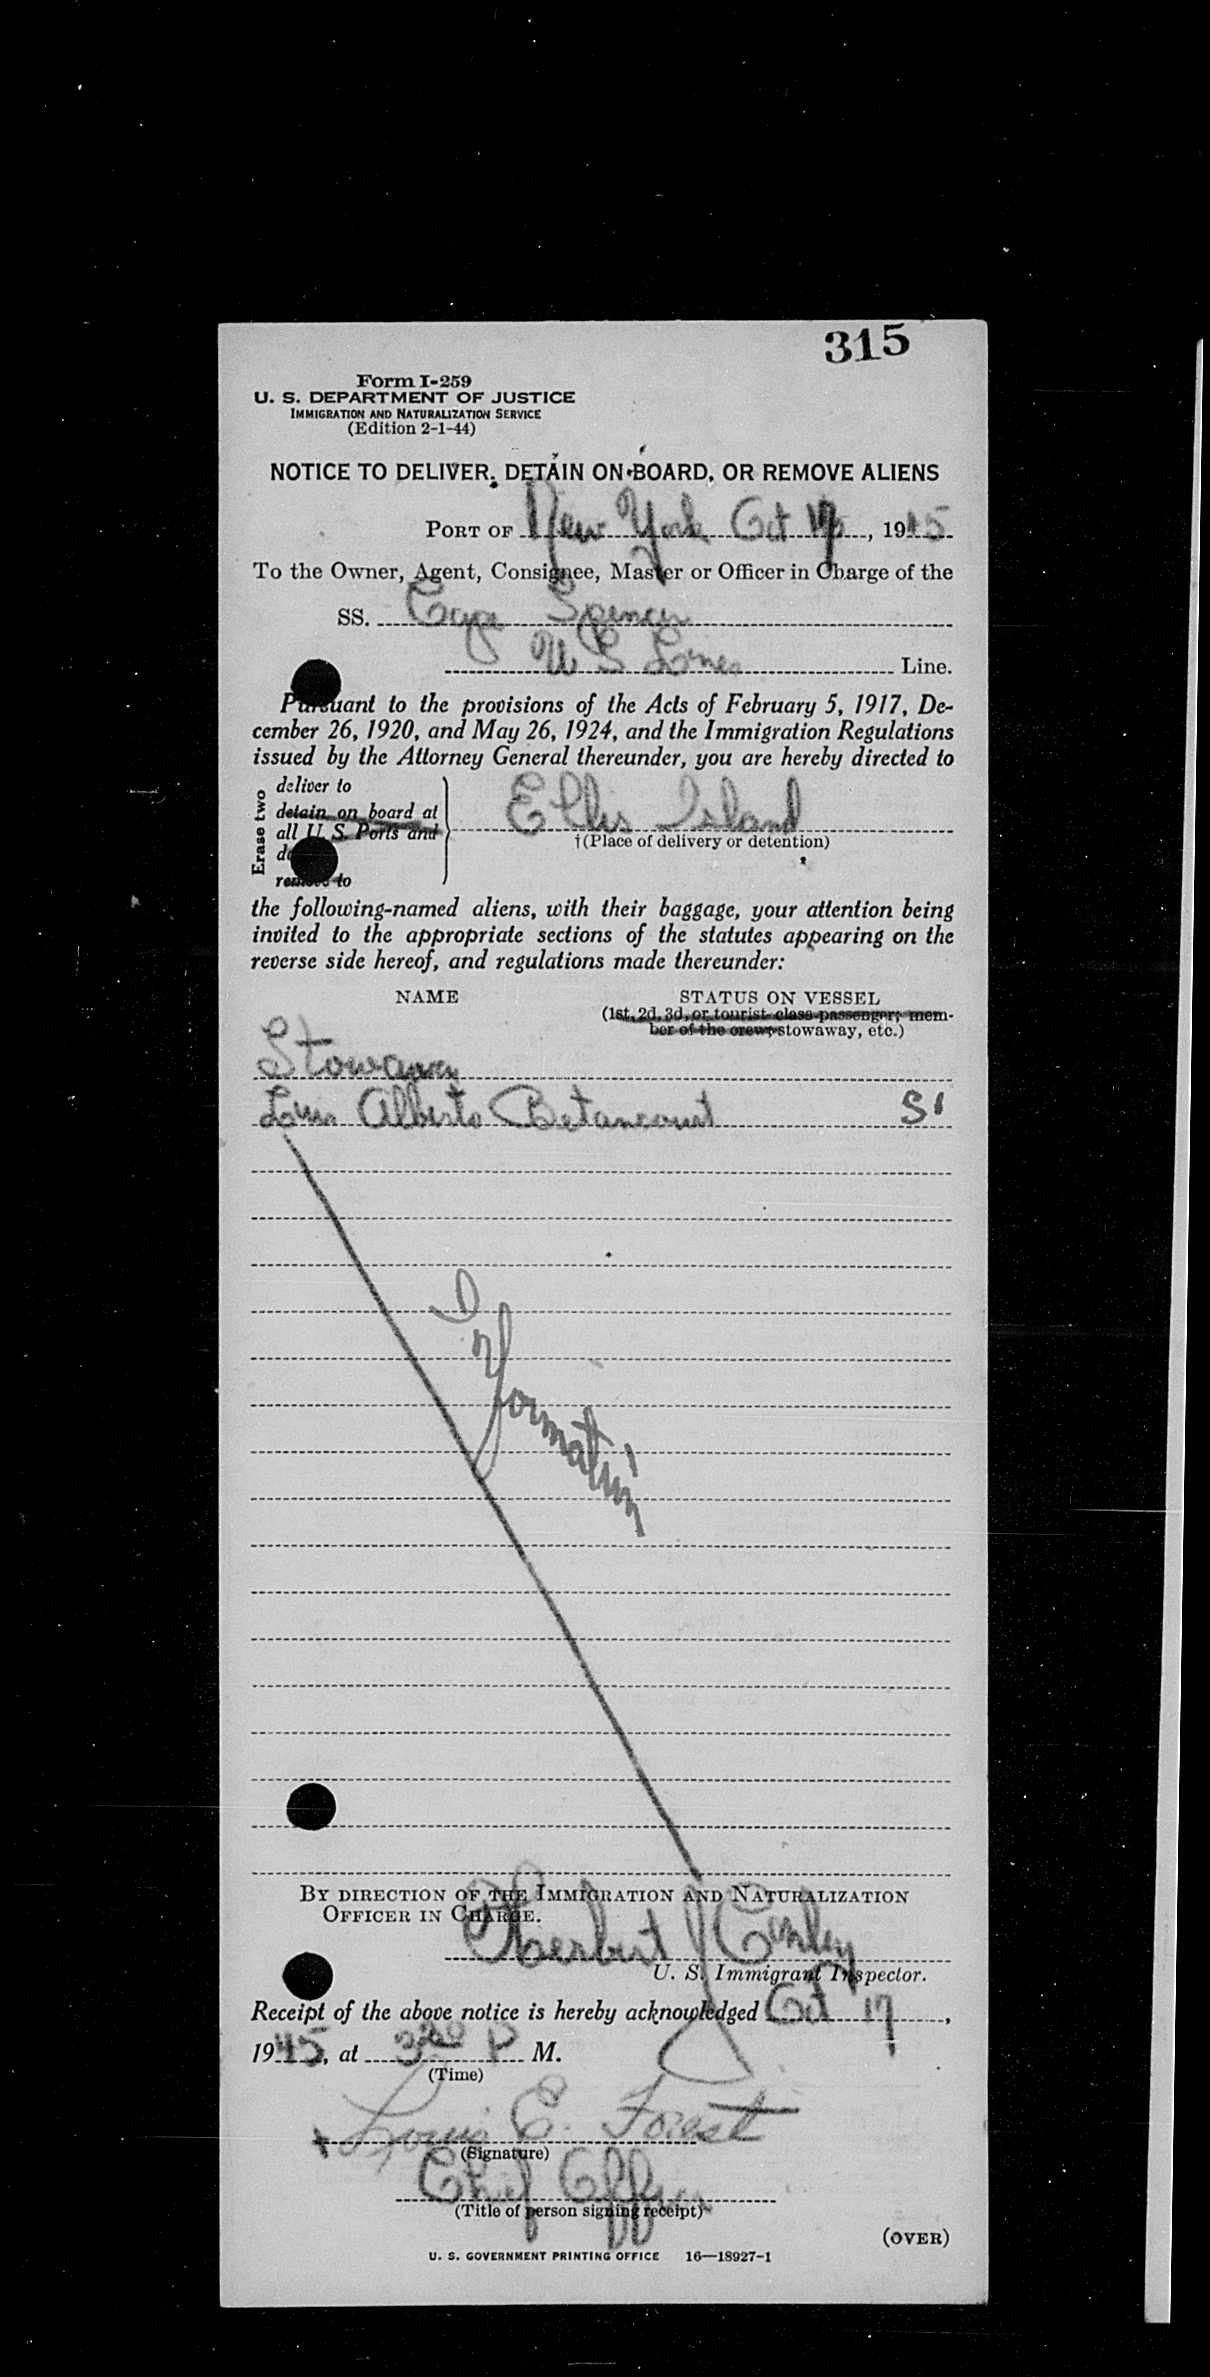 315
Form I-259
U. S. DEPARTMENT OF JUSTICE
IMMIGRATION AND NATURALIZATION SERVICE
(Edition 2-1-44)
NOTICE TO DELIVER, DETAIN ON BOARD, OR REMOVE ALIENS
PORT OF New York Oct 17, 1945
To the Owner, Agent, Consignee, Master or Officer in Charge of the
SS. Cape Spencer
U S Lines Line.
Pursuant to the provisions of the Acts of February 5, 1917, De-
cember 26, 1920, and May 26, 1924, and the Immigration Regulations
issued by the Attorney General thereunder, you are hereby directed to
Erase two
deliver to
detain on board at
all U. S. Ports and
remove to
Ellis Island
†(Place of delivery or detention)
the following-named aliens, with their baggage, your attention being
invited to the appropriate sections of the statutes appearing on the
reverse side hereof, and regulations made thereunder:
NAME STATUS ON VESSEL
(1st, 2d, 3d, or tourist class passenger; mem-
ber of the crew, stowaway, etc.)
Stowaway
Luis Alberto Betancourt SI
Information
BY DIRECTION OF THE IMMIGRATION AND NATURALIZATION
OFFICER IN CHARGE.
Herbert J Conley
U. S. Immigrant Inspector.
Receipt of the above notice is hereby acknowledged Oct 17,
1945, at 3 20 P M.
(Time)
Louis E. Forest
(Signature)
Chief Officer
(Title of person signing receipt)
(OVER)
U. S. GOVERNMENT PRINTING OFFICE 16—18927-1